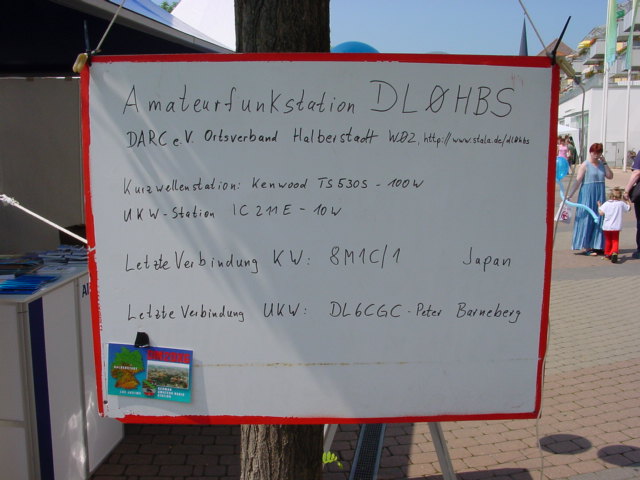 Amateurfunkstation DLØHBS
DARC e.V. Ortsverband Halberstadt WØ2, http://www.stala.de/dl0hbs
Kurzwellenstation: Kenwood TS530S - 100W
UKW-Station IC 211E - 10W
Letzte Verbindung KW: 8M1C/1 Japan
Letzte Verbindung UKW: DL6CGC - Peter Barneberg
HALBERSTADT